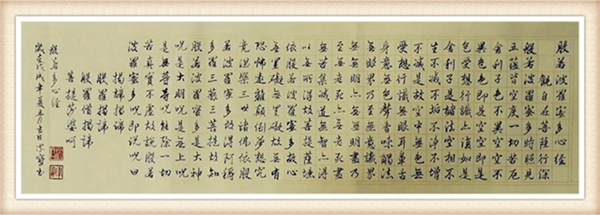 般若波羅蜜多心經
觀自在菩薩行深
般若波羅蜜多時照見
五蘊皆空度一切苦厄
舍利子色不異空空不
異色色即是空空即是
色受想行識亦復如是
舍利子是諸法空相不
生不滅不垢不淨不增
不減是故空中無色無
受想行識無眼耳鼻舌
身意無色聲香味觸法
無眼界乃至無意識界
無無明亦無無明盡乃
至無老死亦無老死盡
無苦集滅道無智亦無得
以無所得故菩提薩埵
依般若波羅蜜多故心
無罣礙無罣礙故無有
恐怖遠離顛倒夢想究
竟涅槃三世諸佛依般
若波羅蜜多故得阿耨
多羅三藐三菩提故知
般若波羅蜜多是大神
咒是大明咒是無上咒
是無等等咒能除一切
苦真實不虛故說般若
波羅蜜多咒即說咒曰
揭諦揭諦
般羅揭諦
般羅僧揭諦
菩提薩婆訶
般若多心經
歲在戊戌年夏